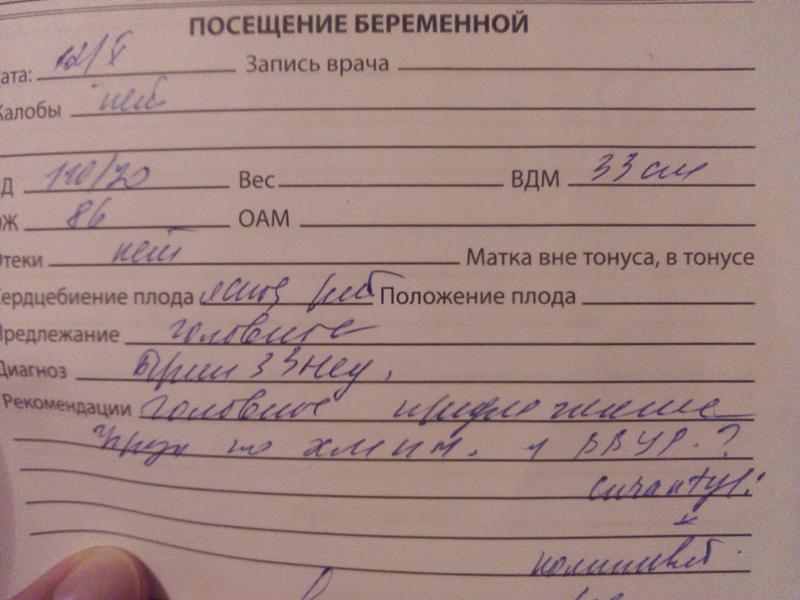 ПОСЕЩЕНИЕ БЕРЕМЕННОЙ
ата: 12/X Запись врача
Жалобы нет
Д 110/70 Вес ВДМ 33 см
ОЖ 86 ОАМ
Отеки нет Матка вне тонуса, в тонусе
Сердцебиение плода ясное Положение плода
Предлежание головное
Диагноз 33 нед.
Рекомендации головное предлежание
по ВВУР.?